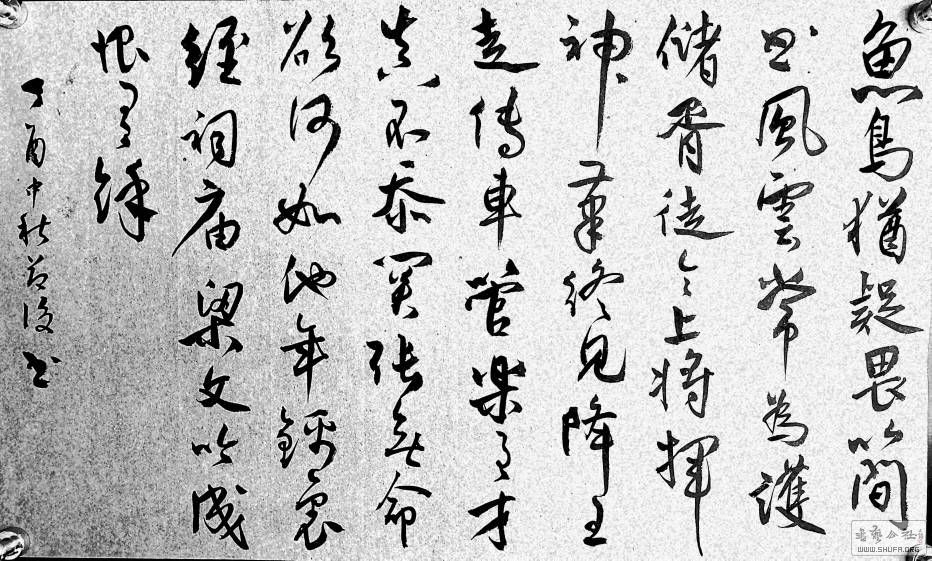 魚鳥猶疑畏簡
书風雲常為護
儲胥徒令上將揮
神筆終見降王
走傳車管樂有才
真不忝关張無命
欲何如他年錦裏
經祠庙梁父吟成
恨有餘
丁酉中秋前後书
書藝公社
WWW.SHUFA.ORG